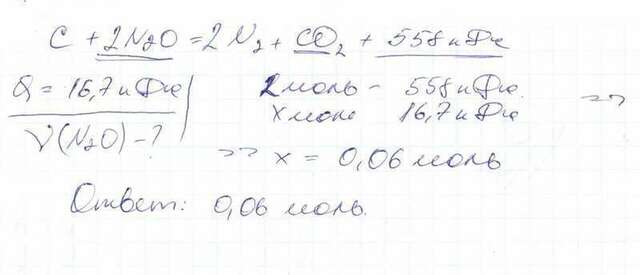 C + 2N2O = 2N2 + CO2 + 558 кДж
Q = 16,7 кДж
ν(N2O) - ?
2 моль - 558 кДж
x моль 16,7 кДж =>
=> x = 0,06 моль
Ответ: 0,06 моль.